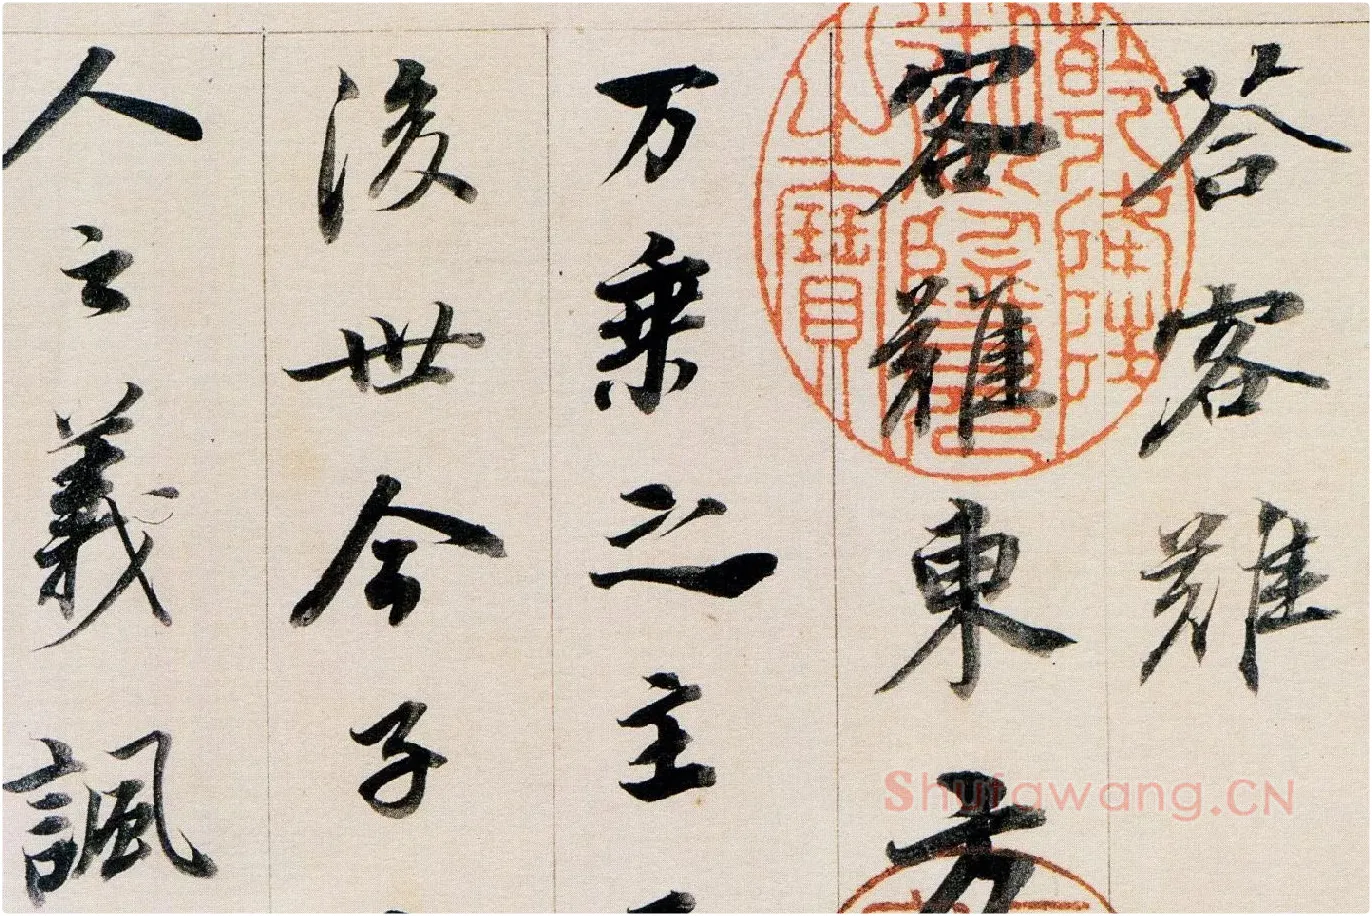 答客難
客難東方
万乗之主
後世今子
人之義諷
Shufawang.CN